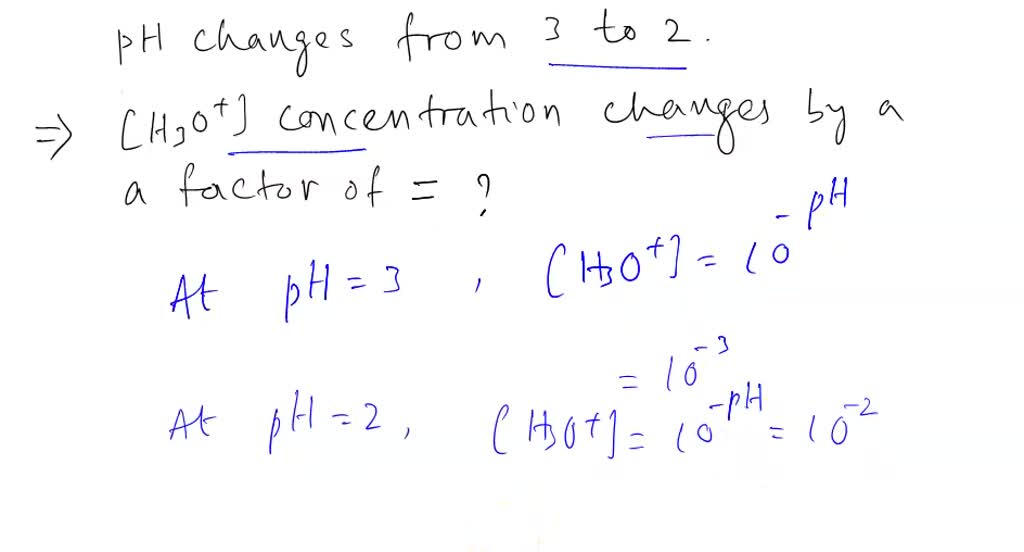 pH changes from 3 to 2.
⇒ [H₃O⁺] concentration changes by a
a factor of = ?
At pH = 3 , [H₃O⁺] = 10⁻ᵖᴴ
= 10⁻³
At pH = 2, [H₃O⁺] = 10⁻ᵖᴴ = 10⁻²